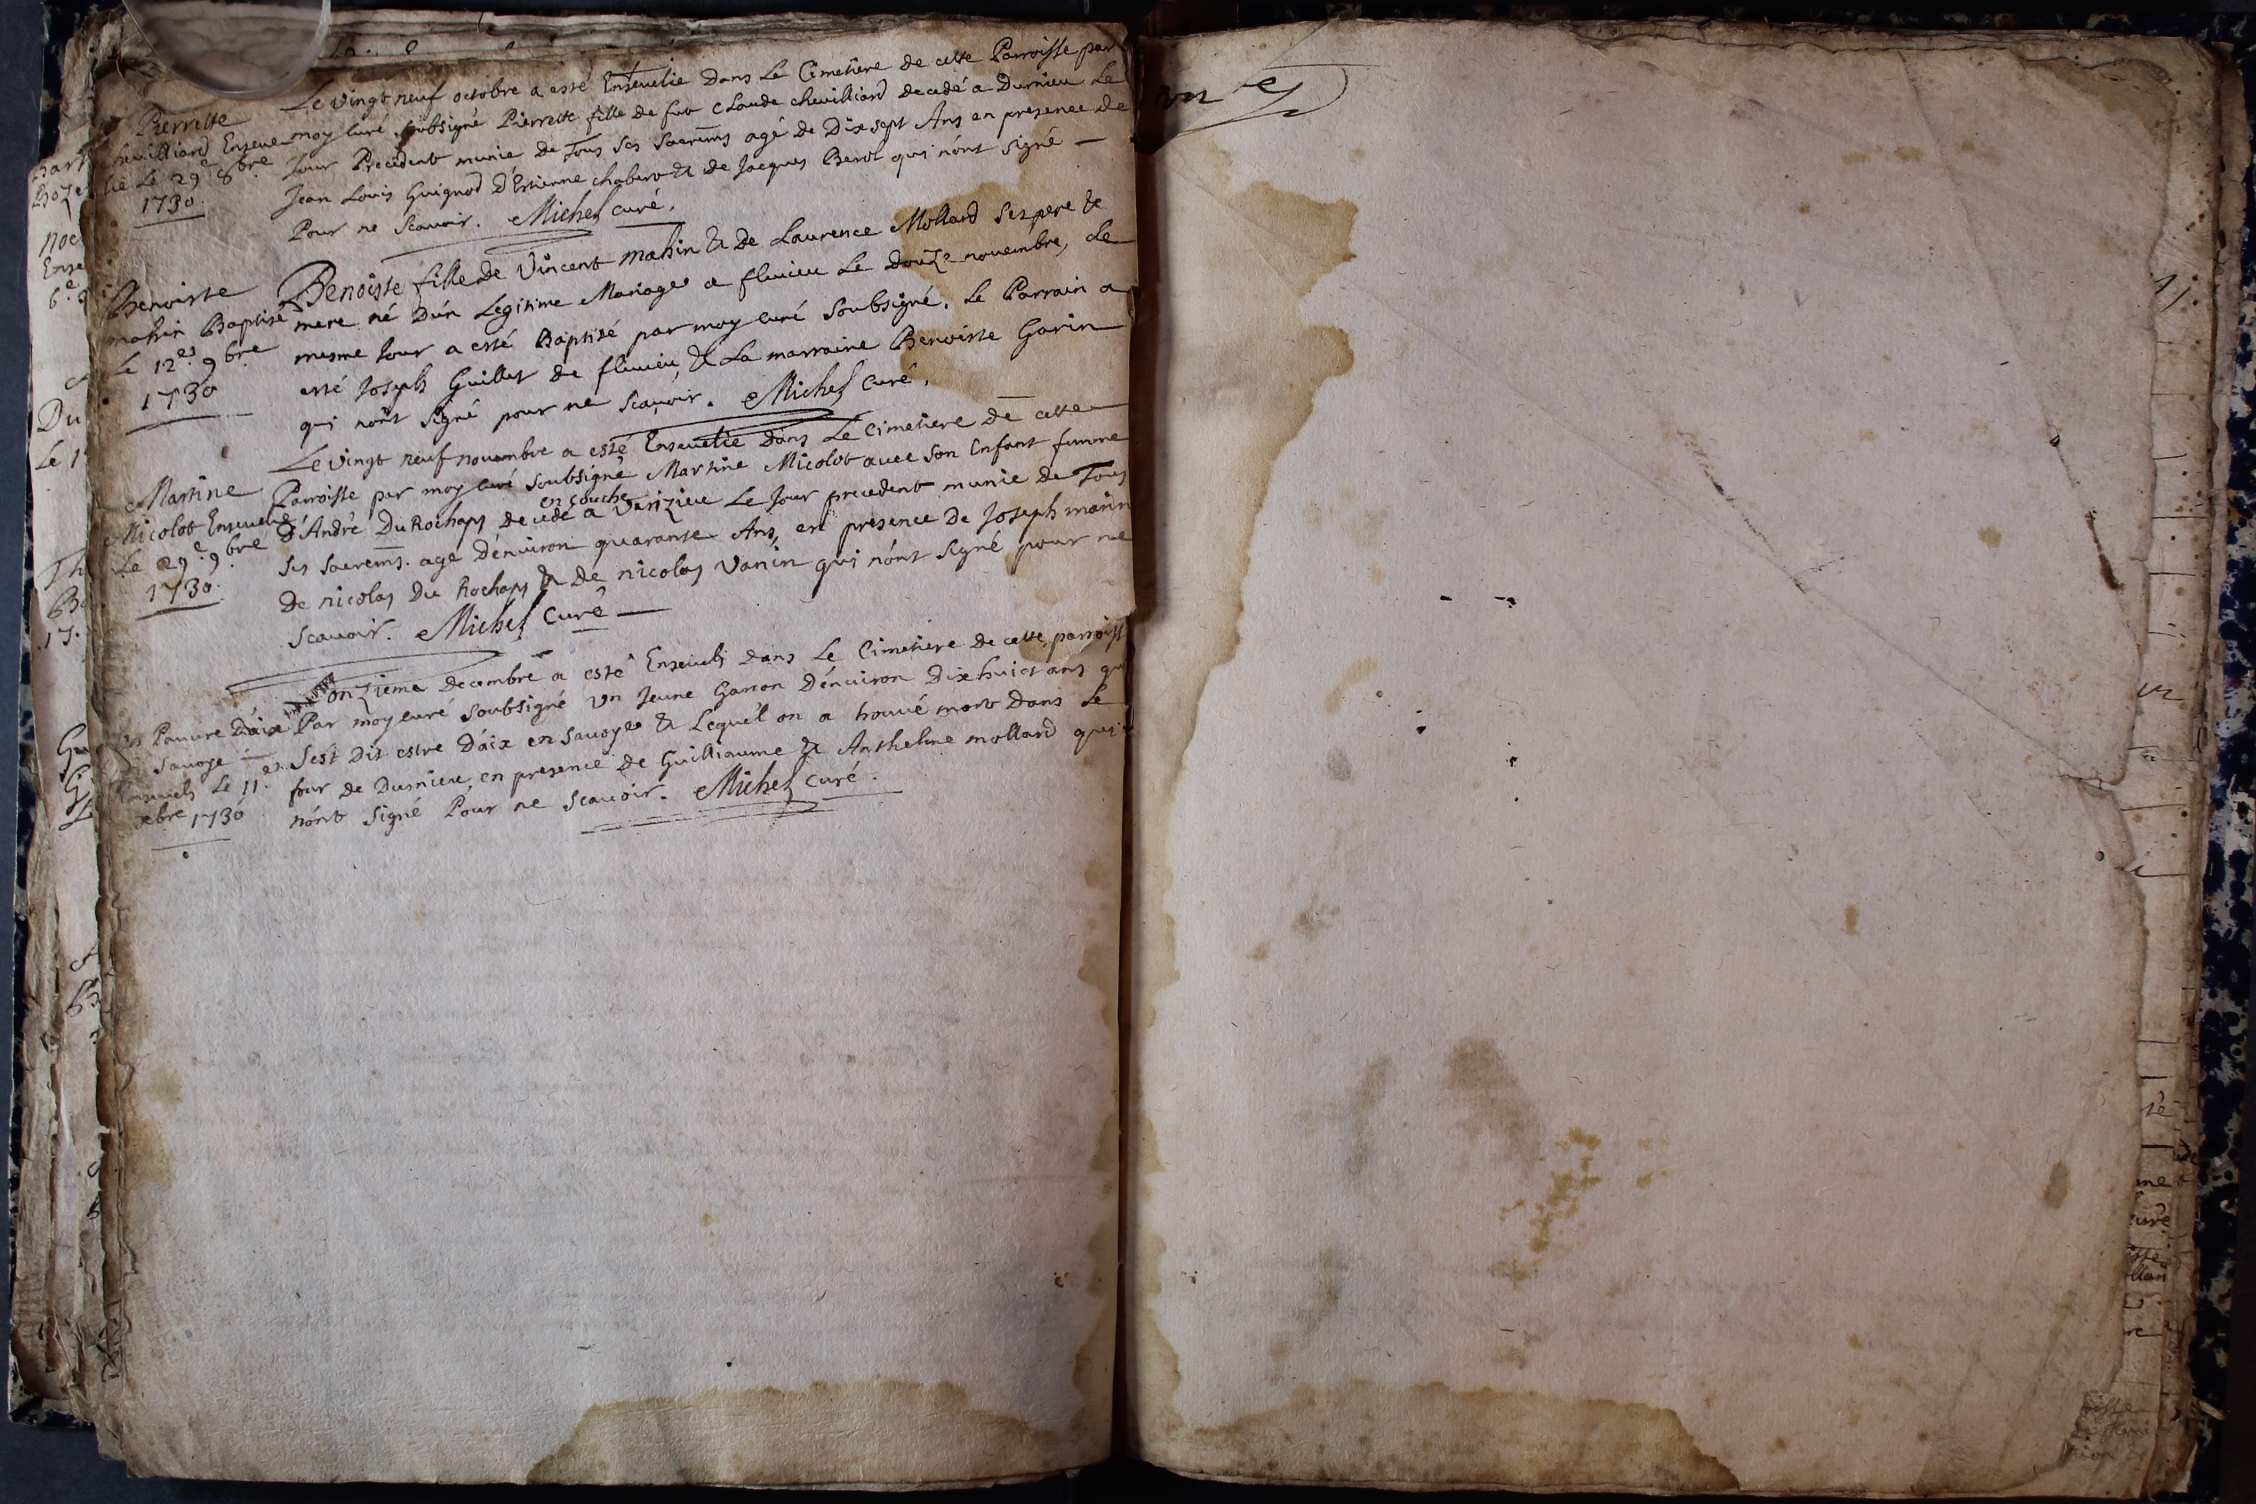 Pierrette
chevilliard Ensevelie
lie Le 29e 8bre
1730.
Le vingt neuf octobre a esté Ensevelie dans Le Cimetiere de cette Parroisse par
moy curé soubsigné Pierrette fille de feu Claude chevilliard decedé a Durnieu Le
Jour Precedent munie de Tous ses sacrems agé de Dix sept Ans en presence de
Jean Louis Guignod d'Estienne chabert & de Jacques Berol qui n'ont signé
Pour ne scavoir. Michel curé.
Benoiste
mathin Baptisé
Le 12e 9bre
1730
Benoiste fille de Vincent mathin & de Laurence Mollard ses pere &
mere né d'un Legitime Mariage a fluvieu Le douze novembre, Le
mesme Jour a esté Baptisé par moy curé soubsigné. Le Parrain a
esté Joseph Guillet de fluvieu, & La marraine Benoiste Garin
qui n'ont signé pour ne scavoir. Michel curé.
Martine
Micolot Ensevelie
Le 29e 9bre
1730.
Le vingt neuf novembre a esté Ensevelie dans Le Cimetiere de cette
Parroisse par moy curé soubsigné Martine Micolot avec son Enfant femme
en couche
d'André Du Rochaps decedé a Varizieu Le Jour precedent munie de Tous
ses sacrems. agé d'environ quarante Ans, en presence de Joseph marin
de nicolas Du Rochaps & de nicolas Vanin qui n'ont signé pour ne
scavoir. Michel Curé
Pauvre d'aix
Savoye
Enseveli Le 11e
xbre 1730
onzieme decembre a esté Enseveli dans Le Cimetiere de cette parroisse
Par moy curé soubsigné un Jeune Garson d'environ Dix huict ans qui
s'est dit estre d'aix en Savoye & Lequel on a trouvé mort dans Le
four de Durnieu, en presence de Guilliaume & Anthelme mollard qui
n'ont signé Pour ne scavoir. Michel curé.